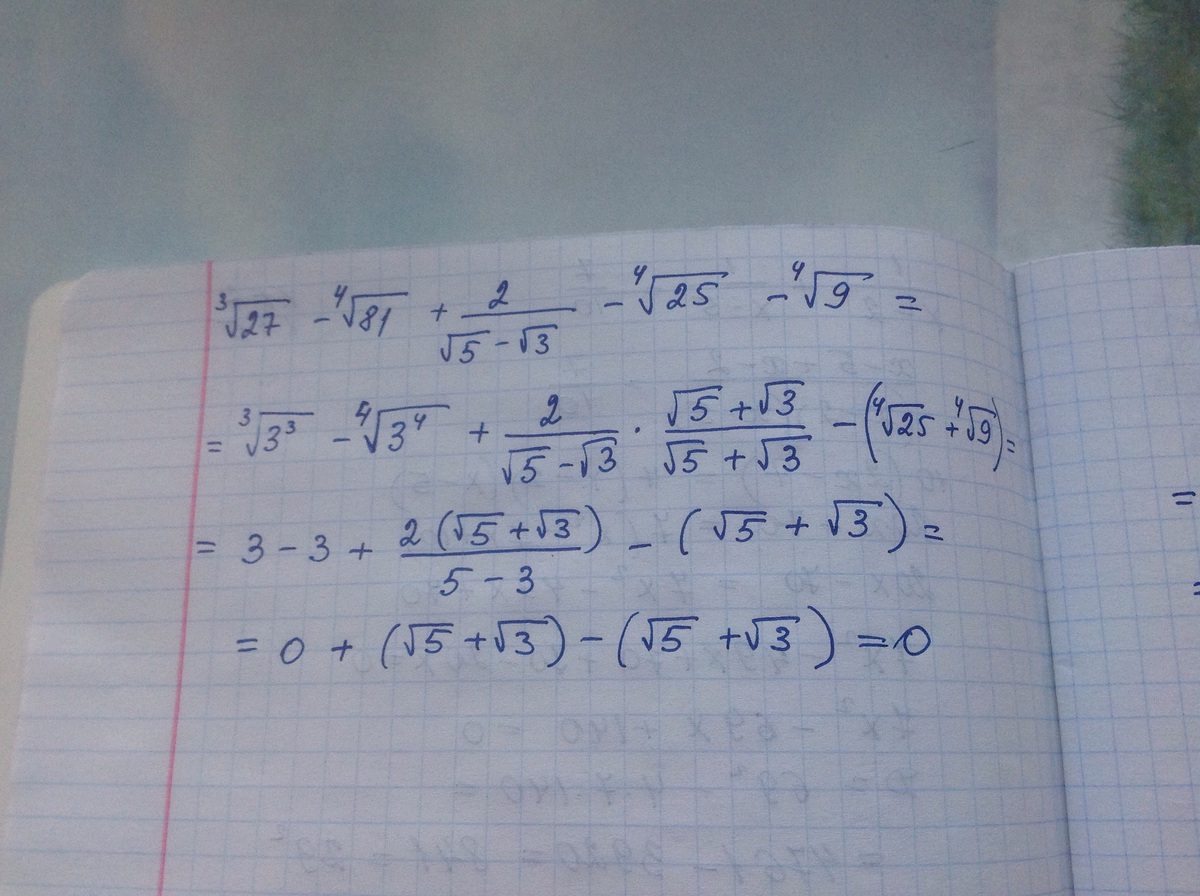 ∛27 - ∜81 + 2/(√5 - √3) - ∜25 - ∜9 =
= ∛(3³) - ∜(3⁴) + 2/(√5 - √3) · (√5 + √3)/(√5 + √3) - (∜25 + ∜9) =
= 3 - 3 + 2(√5 + √3)/(5 - 3) - (√5 + √3) =
= 0 + (√5 + √3) - (√5 + √3) = 0
=
=